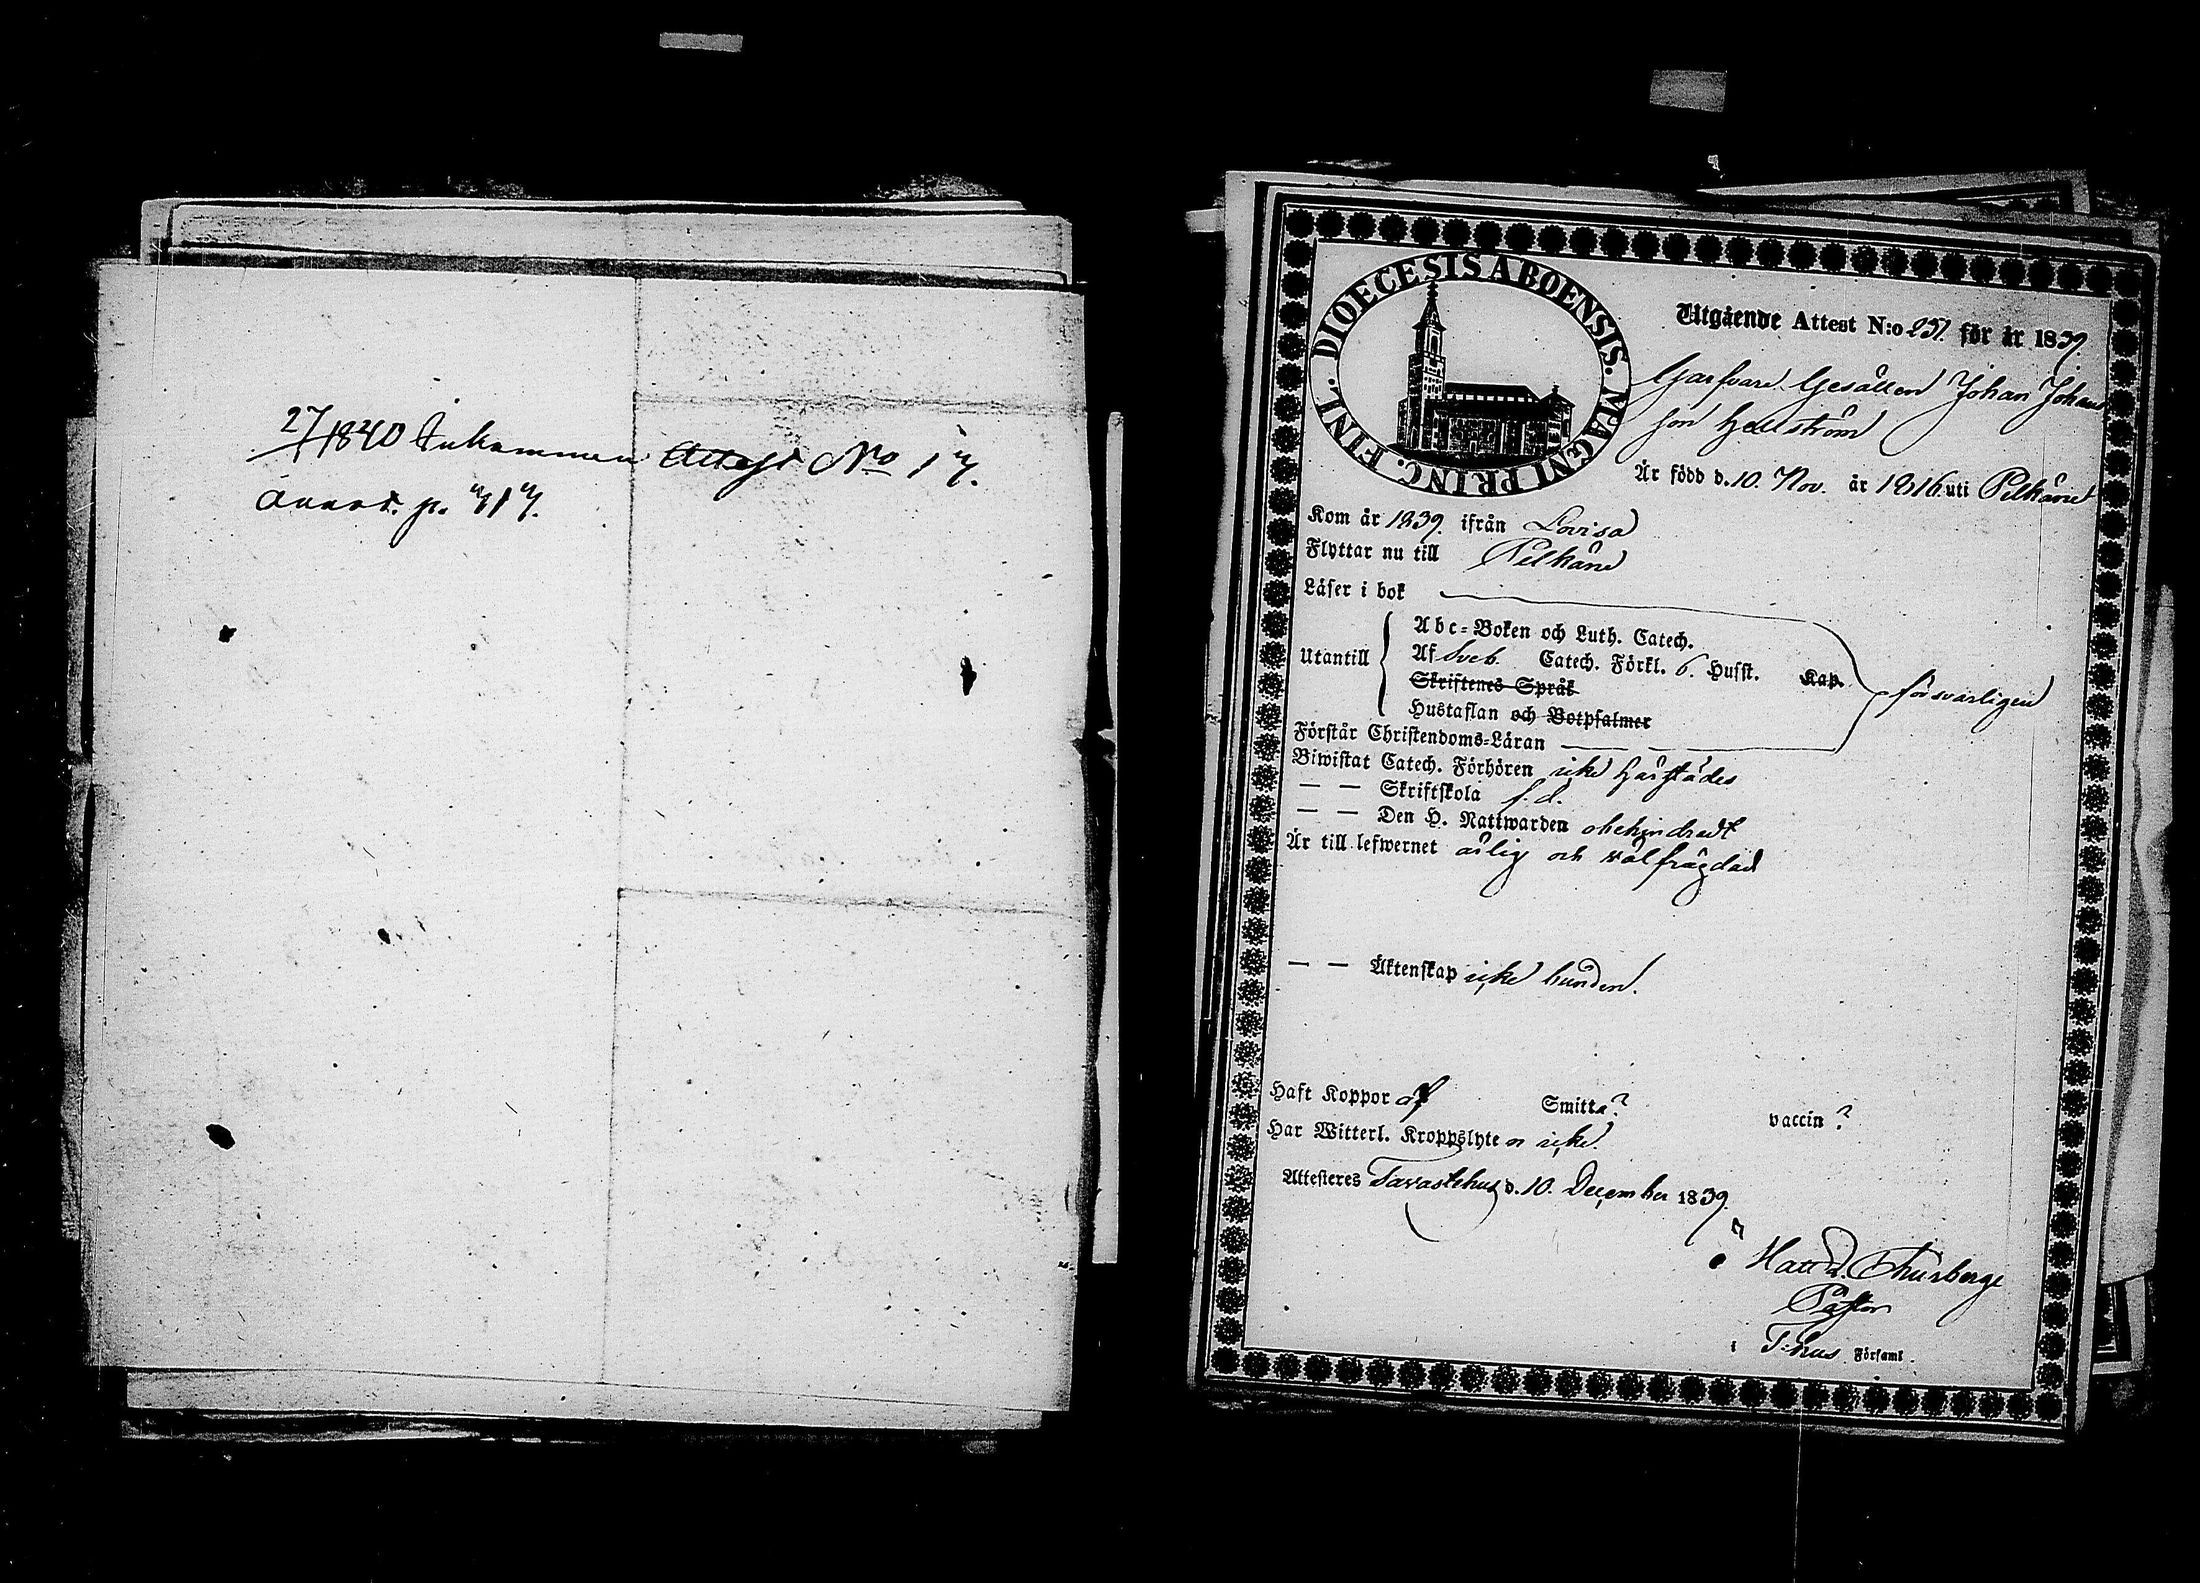 27/1 1840 Inkommen Attest No 17.
Annot. p. 717.
DIOECESIS ABOENSIS. MAGNI PRINC. FINL.
Utgående Attest N:o 237. för år 1839.
Garfvare Gesällen Johan Johans
son Hellström
Är född d. 10. Nov. år 1816 uti Pelkäne
Kom år 1839. ifrån Lovisa
Flyttar nu till Pelkäne
Läser i bok
Utantill
Abc-Boken och Luth. Catech.
Af Sveb. Catech. Förkl. 6. Hufst. Kap.
Skriftenes Språk
Hustaflan och Botpsalmer
försvarligen
Förstår Christendoms-Läran
Biwistat Catech. Förhören icke härstädes
— — Skriftskola f. d.
— — Den H. Nattwarden obehindradt
Är till lefwernet ärlig och välfrägdad
— — Äktenskap icke bunden.
Haft Koppor af Smitta? vaccin?
Har Witterl. Kroppslyte icke.
Attesteres Tavastehus d. 10. December 1839.
Pastor
i T:hus Församl.